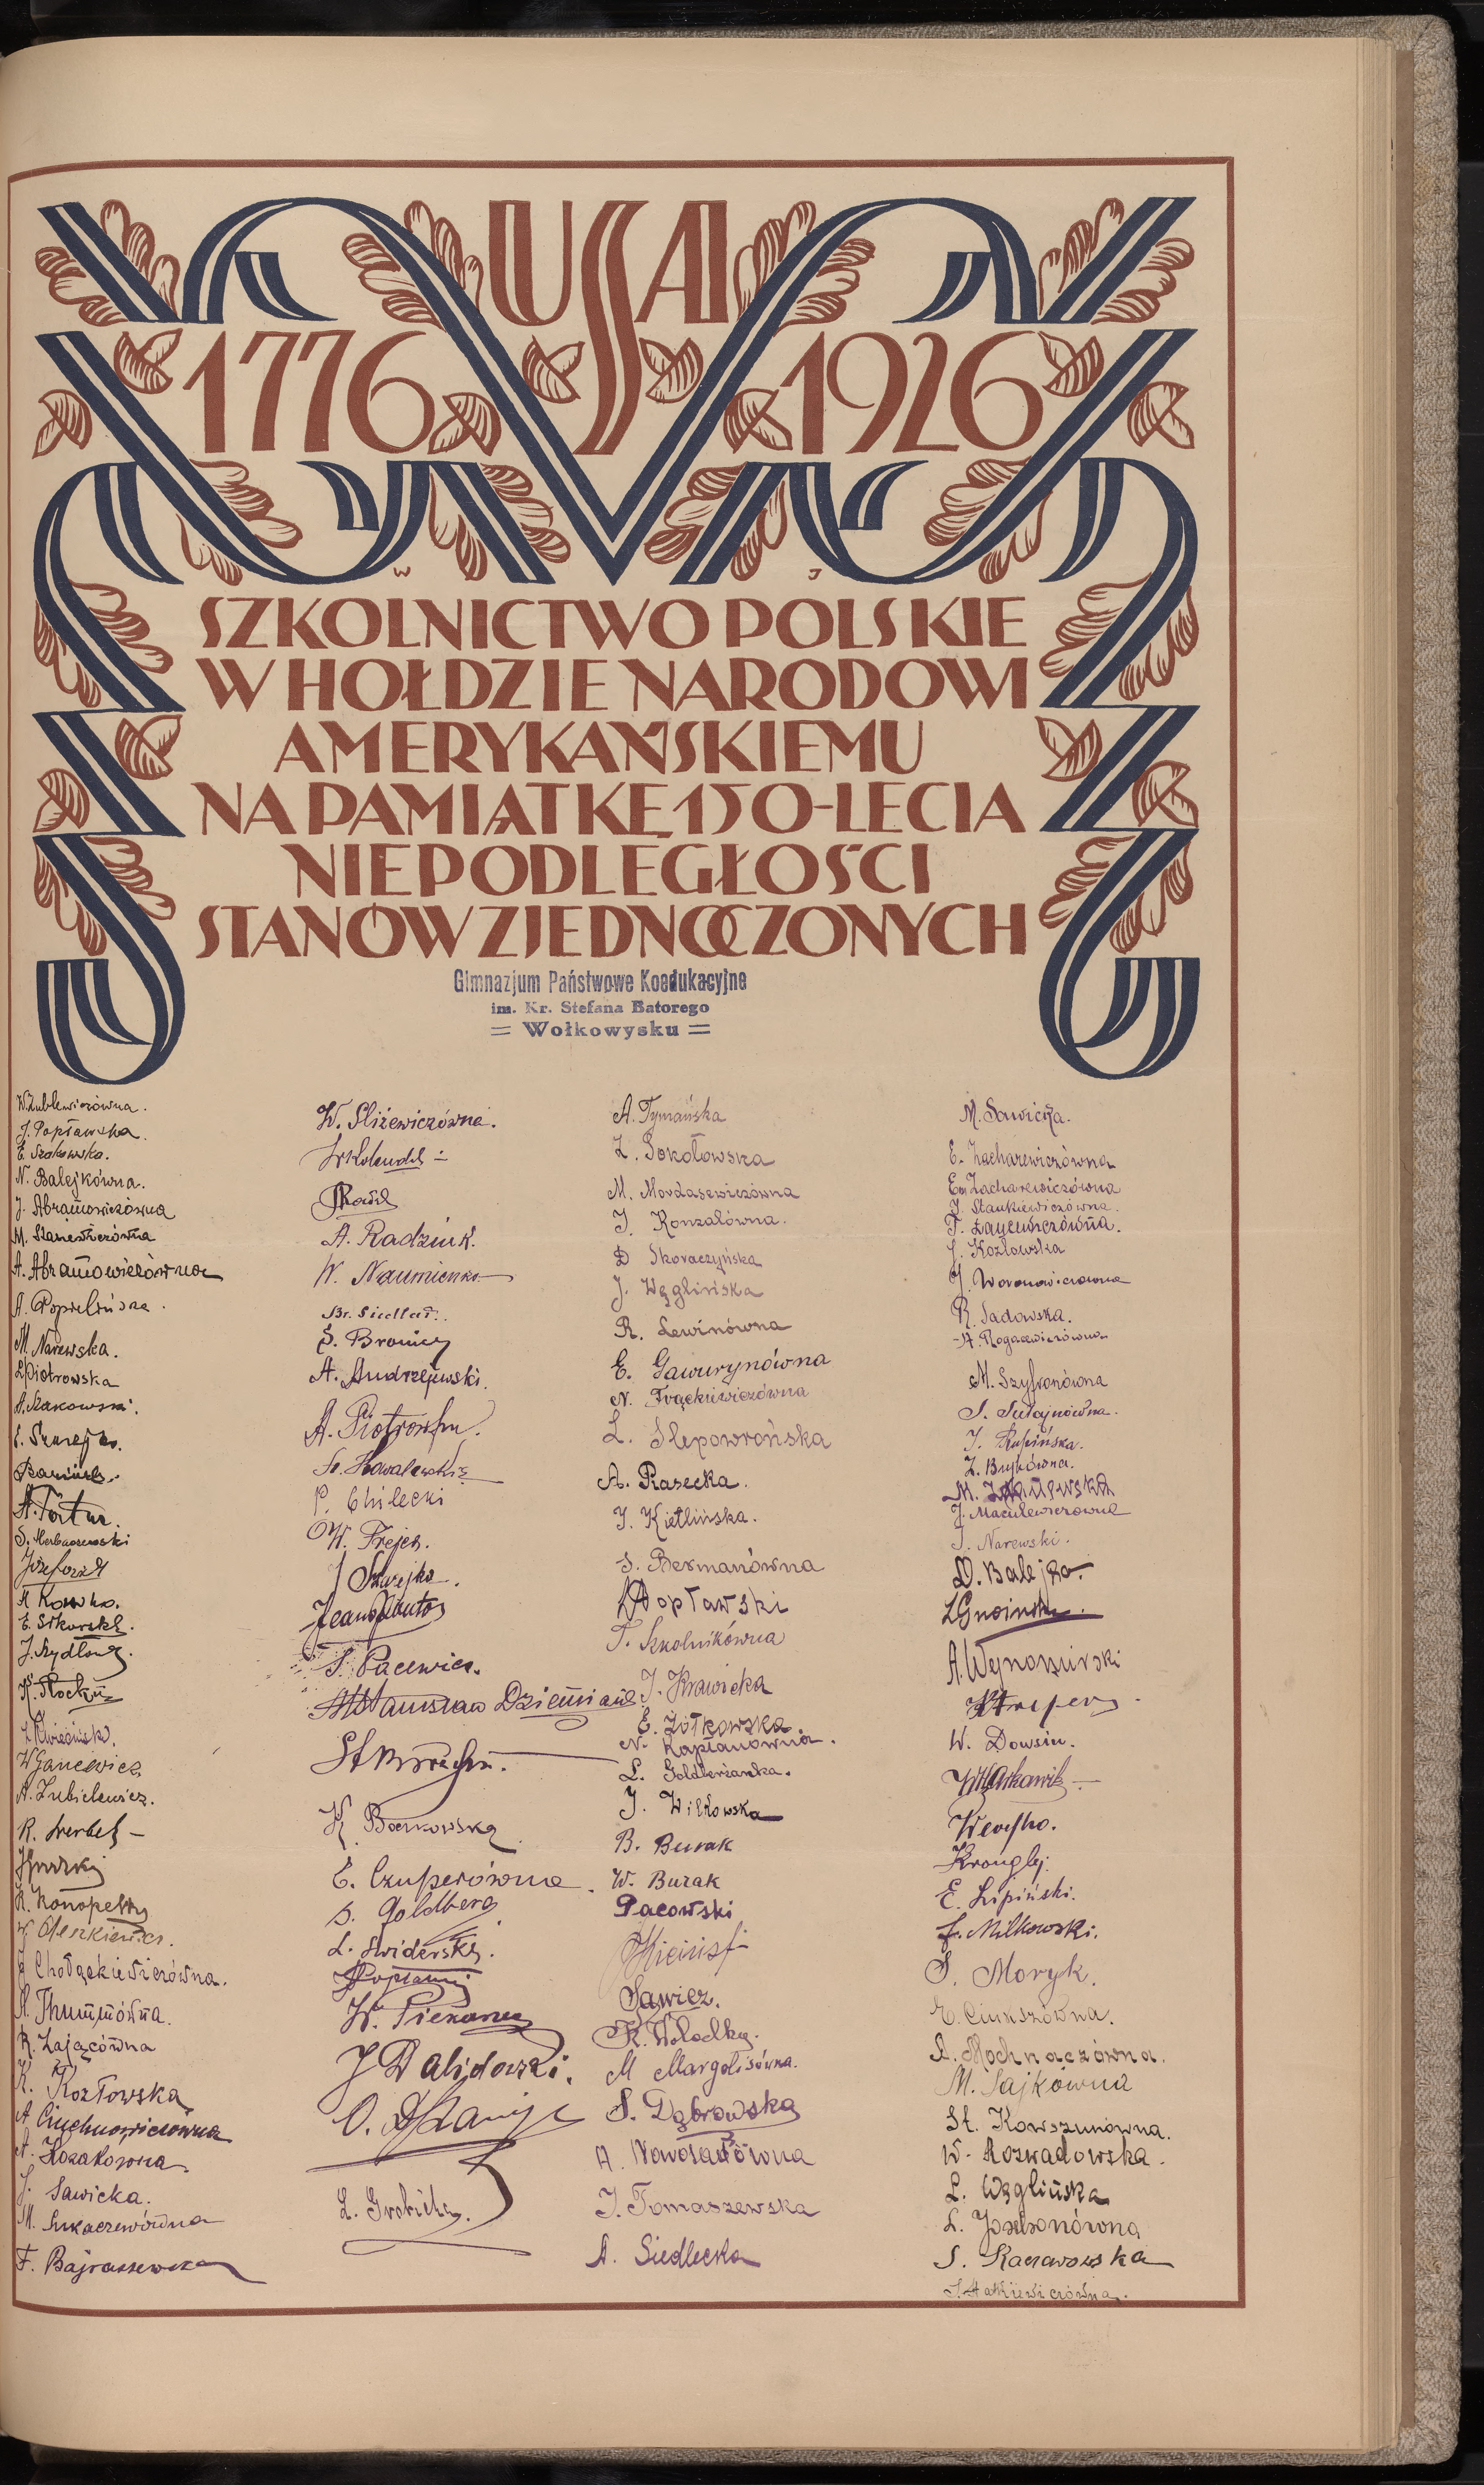 USA
1776 1926
W J
SZKOLNICTWO POLSKIE
W HOŁDZIE NARODOWI
AMERYKAŃSKIEMU
NA PAMIĄTKĘ 150-LECIA
NIEPODLEGŁOŚCI
STANÓW ZJEDNOCZONYCH
Gimnazjum Państwowe Koedukacyjne
im. Kr. Stefana Batorego
= Wołkowysku =
W. Zublewiczówna.
J. Popławska.
E. Szakowska.
N. Balejkówna.
J. Abramowiczówna
M. Staniewiczówna
A. Abramowiczówna
A. Popielińska.
M. Narewska.
L. Piotrowska
A. Szakowski.
E. Szurejko.
A. Tortur.
S. Herbaczewski
E. Sikorski.
J. Szydłow
K. Płocki
W. Ganiewicz
A. Zubielewicz.
R. Werbel
K. Konopelko
W. Oleszkiewicz.
J. Chołąckiewiczówna.
A. Thummówna.
R. Zającówna
K. Kozłowska
A. Ciuchnowiczówna
A. Kozakówna.
J. Sawicka.
M. Łukaszewówna
F. Bajraszewska
W. Śliżewiczówna.
A. Radziuk.
W. Naumienko
Br. Siedlar.
S. Bronicz
A. Andrzejewski.
A. Piotrowski.
St. Kowalewski
P. Chilecki
W. Frejer.
J. Szurejko.
S. Pacewicz.
Stanisław Dziemian
K. Borkowska
E. Czuperówna.
S. Goldberg
L. Świderski.
W. Piekarz
J. Dalidowski.
A. Tymańska
Z. Sokołowska
M. Mordasewiczówna
J. Konzalówna.
D. Skoraczyńska
J. Węglińska
R. Lewinówna
E. Gawurynówna
N. Frąckiewiczówna
L. Ślepowrońska
A. Piasecka.
J. Kietlińska.
S. Bermanówna
Popławski
T. Szkolnikówna
J. Krawicka
E. Żółkowska.
N. Kapłanówna.
L. Goldberżanka.
J. Wilkowska
B. Burak
W. Burak
Pacowski
Sawicz.
K. Wołodko.
M. Margolisówna.
S. Dąbrowska
A. Nawosadówna
J. Tomaszewska
A. Siedlecka
M. Sawicka.
E. Zacharewiczówna
Em. Zacharewiczówna
J. Stankiewiczówna.
F. Zayewiczówna.
J. Kozłowska
J. Woronowiczówna
R. Sadowska.
A. Rogacewiczówna
M. Szyfronówna
S. Sułajnówna.
J. Rupińska.
Z. Bujkówna.
J. Maculewiczówna
J. Narewski.
D. Balejko.
L. Gnoiński.
A. Wynoziński
W. Dowsin.
E. Lipiński.
F. Milkowski.
S. Moryk.
E. Cinkszówna.
A. Mochnaczówna.
M. Sajkówna
St. Kowszunówna.
W. Rozwadowska.
L. Węglińska
L. Joselsonówna
S. Raczawska
S. Hatkiewiczówna.